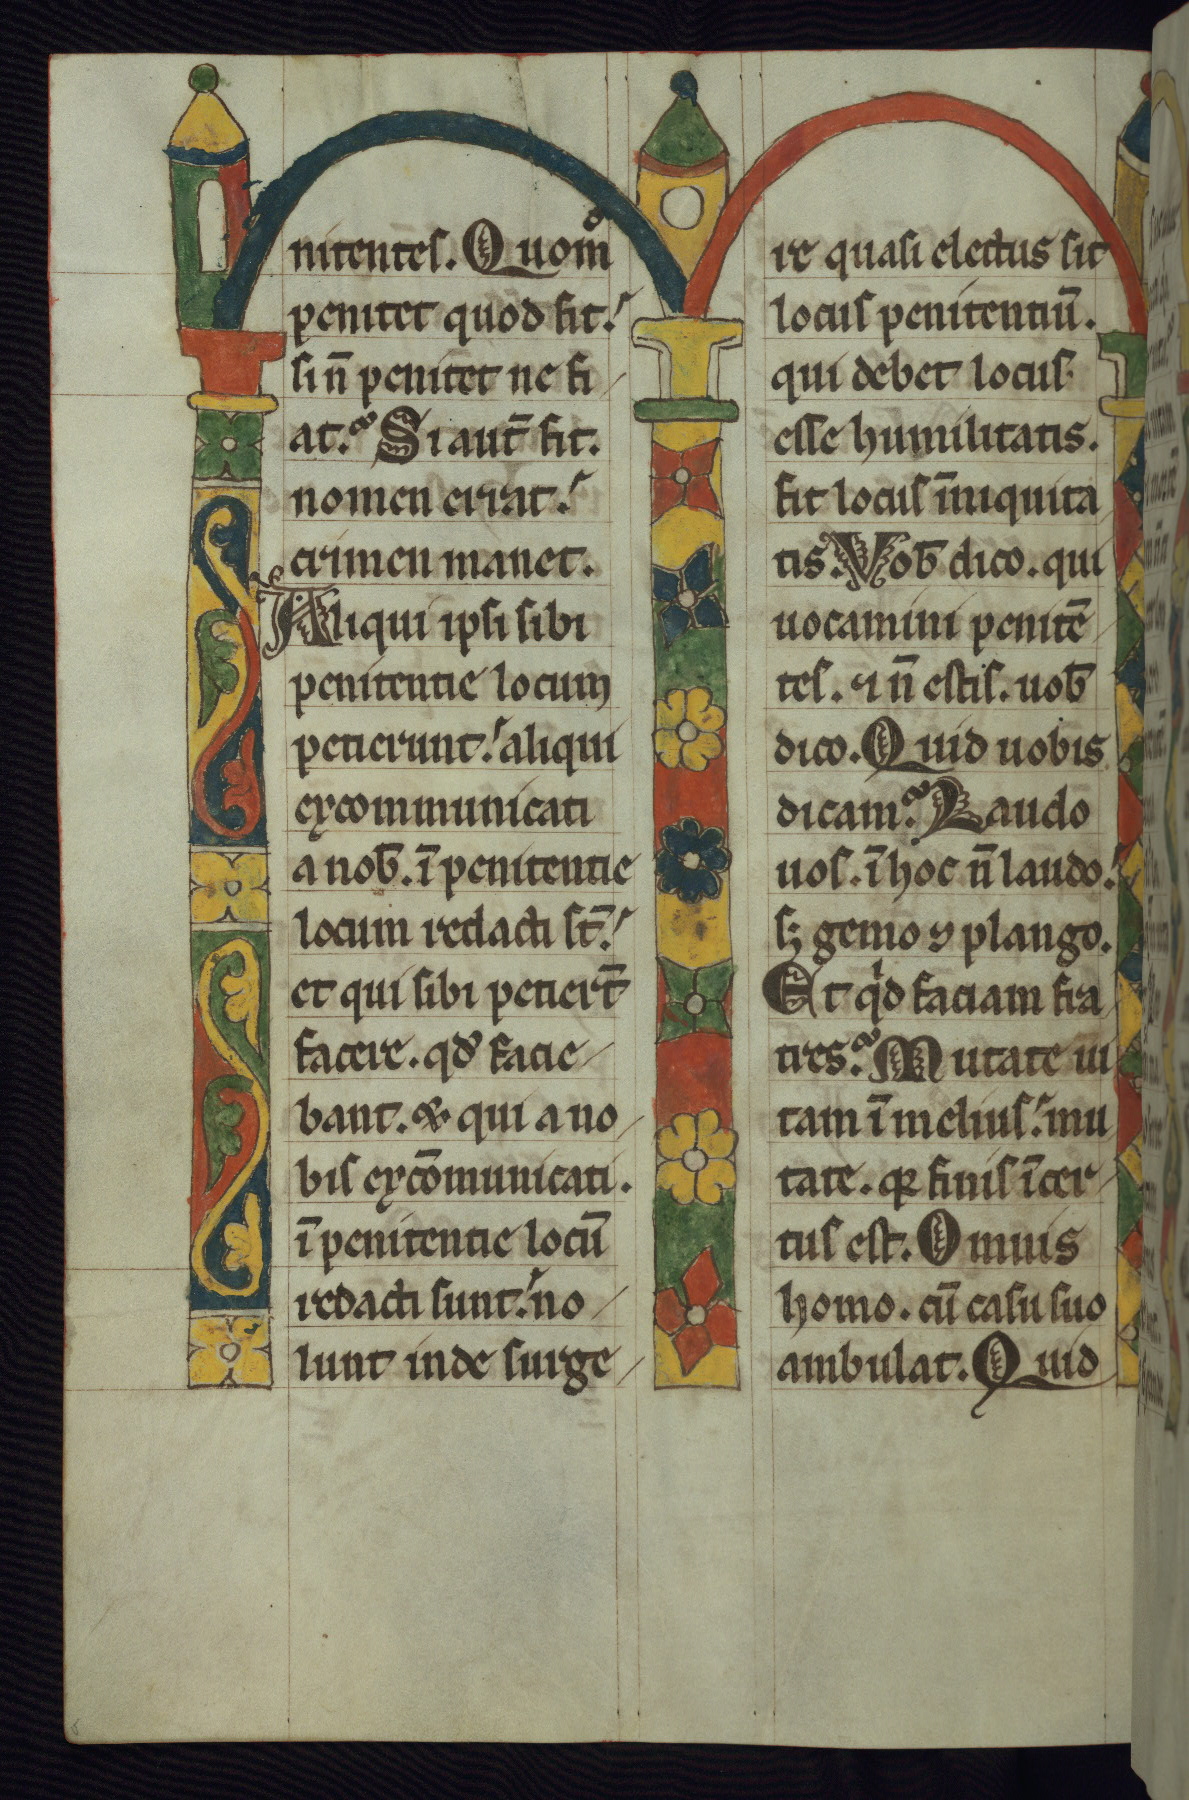 nitentes. Quom̊
penitet quod fit.
si n̄ penitet ne fi
at. Si aut̄ fit.
nomen errat.
crimen manet.
Aliqui ipsi sibi
penitentie locum
petierunt. aliqui
excommunicati
a nob̄. ī penitentie
locum redacti st̄.
et qui sibi petiert̄
facere. qd̓ facie
bant. & qui a no
bis excōmunicati.
ī penitentie locū
redacti sunt. no
lunt inde surge
re quasi electus sit
locus penitentiū.
qui debet locus
esse humilitatis.
fit locus īniquita
tis. Vob̄ dico. qui
uocamini penitē
tes. ⁊ n̄ estis. uob̄
dico. Quid uobis
dicam. Laudo
uos. ī hoc n̄ laudo.
sꝫ gemo ⁊ plango.
Et qͥd faciam fra
tres. Mutate ui
tam ī melius. mu
tate. qꝛ finis īcer
tus est. Omnis
homo. cū casu suo
ambulat. Quid